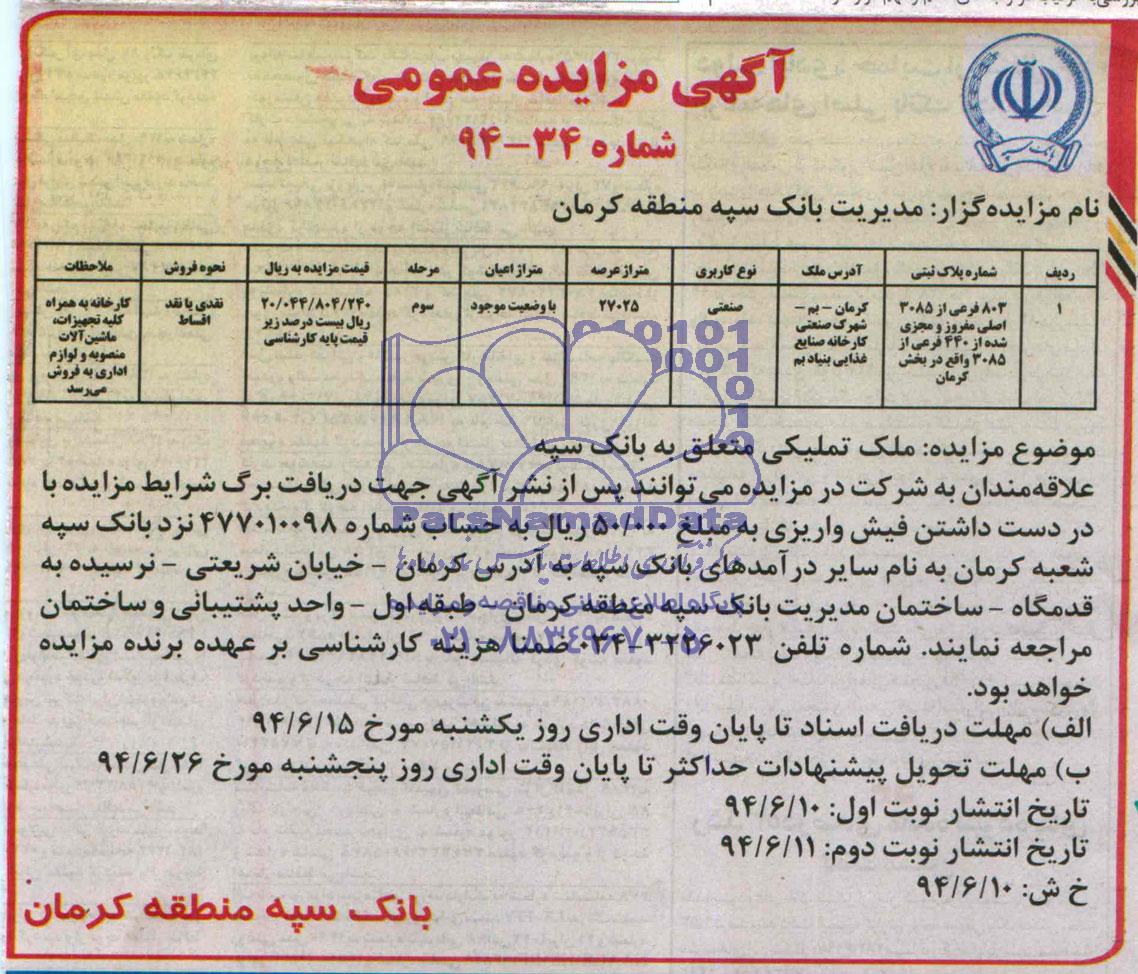 آگهی مزایده عمومی
شماره ۳۴-۹۴
بانک سپه
نام مزایده‌گزار: مدیریت بانک سپه منطقه کرمان
ردیف شماره پلاک ثبتی آدرس ملک نوع کاربری متراژ عرصه متراژ اعیان مرحله قیمت مزایده به ریال نحوه فروش ملاحظات
۱
۸۰۳ فرعی از ۳۰۸۵
اصلی مفروز و مجزی
شده از ۴۴۰ فرعی از
۳۰۸۵ واقع در بخش
کرمان
کرمان – بم –
شهرک صنعتی
کارخانه صنایع
غذایی بنیاد بم
صنعتی
۲۷۰۲۵
با وضعیت موجود
سوم
۲۰/۰۴۴/۸۰۴/۲۴۰
ریال بیست درصد زیر
قیمت پایه کارشناسی
نقدی یا نقد
اقساط
کارخانه به همراه
کلیه تجهیزات،
ماشین‌آلات
منصوبه و لوازم
اداری به فروش
می‌رسد
موضوع مزایده: ملک تملیکی متعلق به بانک سپه
علاقه‌مندان به شرکت در مزایده می‌توانند پس از نشر آگهی جهت دریافت برگ شرایط مزایده با
در دست داشتن فیش واریزی به مبلغ ۵۰/۰۰۰ ریال به حساب شماره ۴۷۷۰۱۰۰۹۸ نزد بانک سپه
شعبه کرمان به نام سایر درآمدهای بانک سپه به آدرس کرمان – خیابان شریعتی – نرسیده به
قدمگاه – ساختمان مدیریت بانک سپه منطقه کرمان – طبقه اول – واحد پشتیبانی و ساختمان
مراجعه نمایند. شماره تلفن ۳۲۲۶۰۲۳-۰۳۴ ضمنا هزینه کارشناسی بر عهده برنده مزایده
خواهد بود.
الف) مهلت دریافت اسناد تا پایان وقت اداری روز یکشنبه مورخ ۹۴/۶/۱۵
ب) مهلت تحویل پیشنهادات حداکثر تا پایان وقت اداری روز پنجشنبه مورخ ۹۴/۶/۲۶
تاریخ انتشار نوبت اول: ۹۴/۶/۱۰
تاریخ انتشار نوبت دوم: ۹۴/۶/۱۱
خ ش: ۹۴/۶/۱۰
بانک سپه منطقه کرمان
ParsNamadData
پایگاه اطلاع رسانی مناقصه و مزایده
۰۲۱-۸۸۳۴۹۶۷۰-۵